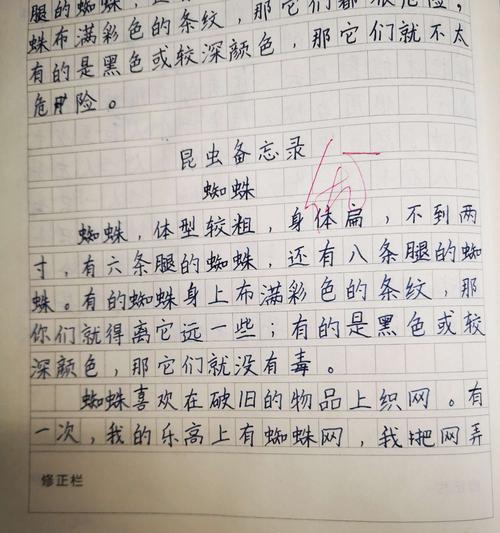 腿的蜘蛛，还有八条腿的蜘
蛛布满彩色的条纹，那它们都很危险，
有的是黑色或较深颜色，那它们就不太
危险。
昆虫备忘录
蜘蛛
蜘蛛，体型较粗，身体扁，不到两
寸，有六条腿的蜘蛛，还有八条腿的蜘
蛛。有的蜘蛛身上布满彩色的条纹，那
你们就得离它远一些；有的是黑色或较
深颜色，那它们就没有毒。
蜘蛛喜欢在破旧的物品上织网。有
一次，我的乐高上有蜘蛛网，我把网弄
修正栏